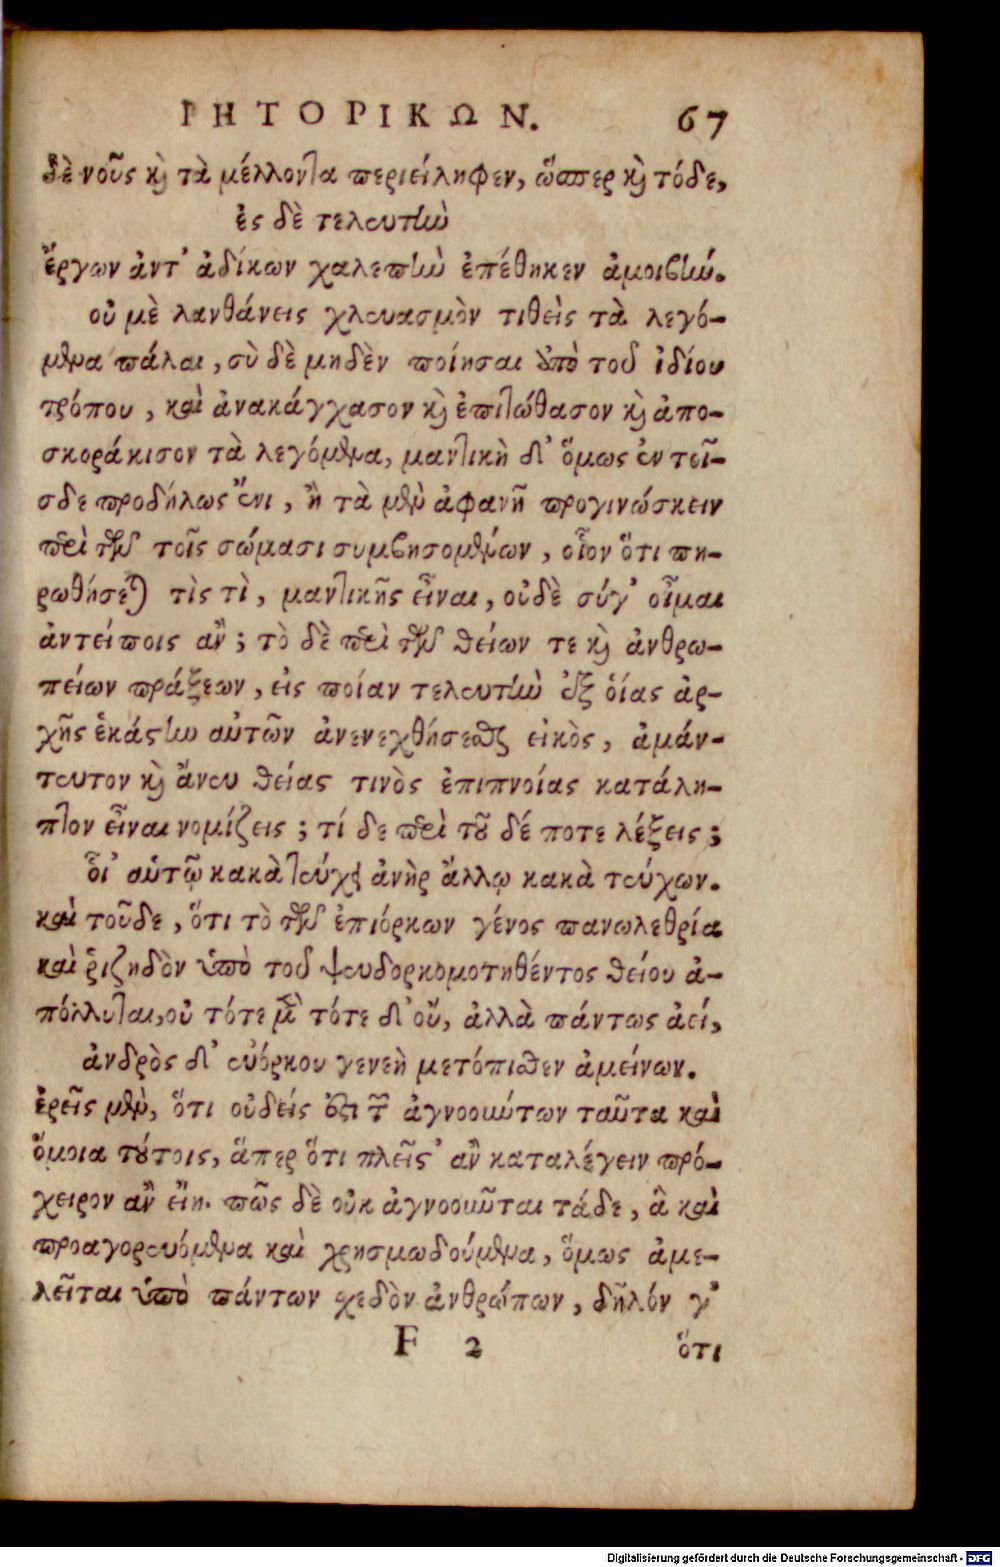 ΡΗΤΟΡΙΚΩΝ. 67
δὲ νοῦς καὶ τὰ μέλλοντα περιείληφεν, ὥσπερ καὶ τόδε,
ἐς δὲ τελευτὴν
ἔργων ἀντ' ἀδίκων χαλεπὴν ἐπέθηκεν ἀμοιβήν.
οὐ μὲ λανθάνεις χλευασμὸν τιθεὶς τὰ λεγό-
μενα πάλαι, σὺ δὲ μηδὲν ποίησαι ἀπὸ τοῦ ἰδίου
τρόπου, καὶ ἀνακάγχασον καὶ ἐπιτώθασον καὶ ἀπο-
σκοράκισον τὰ λεγόμενα, μαντικὴ δ' ὅμως ἐν τοῖ-
σδε προδήλως ἔνι, ἢ τὰ μὲν ἀφανῆ προγινώσκειν
περὶ τῶν τοῖς σώμασι συμβησομένων, οἷον ὅτι πη-
ρωθήσεται τὶς τὶ, μαντικῆς εἶναι, οὐδὲ σύγ' οἶμαι
ἀντείποις ἂν; τὸ δὲ περὶ τῶν θείων τε καὶ ἀνθρω-
πείων πράξεων, εἰς ποίαν τελευτὴν ἐξ οἵας ἀρ-
χῆς ἑκάστην αὐτῶν ἀνενεχθήσεσθαι εἰκὸς, ἀμάν-
τευτον καὶ ἄνευ θείας τινὸς ἐπιπνοίας κατάλη-
πτον εἶναι νομίζεις; τί δε περὶ τοῦ δέ ποτε λέξεις;
οἷ' αὑτῷ κακὰ τεύχει ἀνὴρ ἄλλῳ κακὰ τεύχων.
καὶ τοῦδε, ὅτι τὸ τῶν ἐπιόρκων γένος πανωλεθρία
καὶ ῥιζηδὸν ὑπὸ τοῦ ψευδορκομοτηθέντος θείου ἀ-
πόλλυται, οὐ τότε μὲν τότε δ' οὔ, ἀλλὰ πάντως ἀεί,
ἀνδρὸς δ' εὐόρκου γενεὴ μετόπισθεν ἀμείνων.
ἐρεῖς μὲν, ὅτι οὐδείς ἐστι τῶν ἀγνοούντων ταῦτα καὶ
ὅμοια τούτοις, ἅπερ ὅτι πλεῖστ' ἂν καταλέγειν πρό-
χειρον ἂν εἴη. πῶς δὲ οὐκ ἀγνοοῦνται τάδε, ἃ καὶ
προαγορευόμενα καὶ χρησμωδούμενα, ὅμως ἀμε-
λεῖται ὑπὸ πάντων σχεδὸν ἀνθρώπων, δῆλόν γ'
F 2 ὅτι
Digitalisierung gefördert durch die Deutsche Forschungsgemeinschaft - DFG